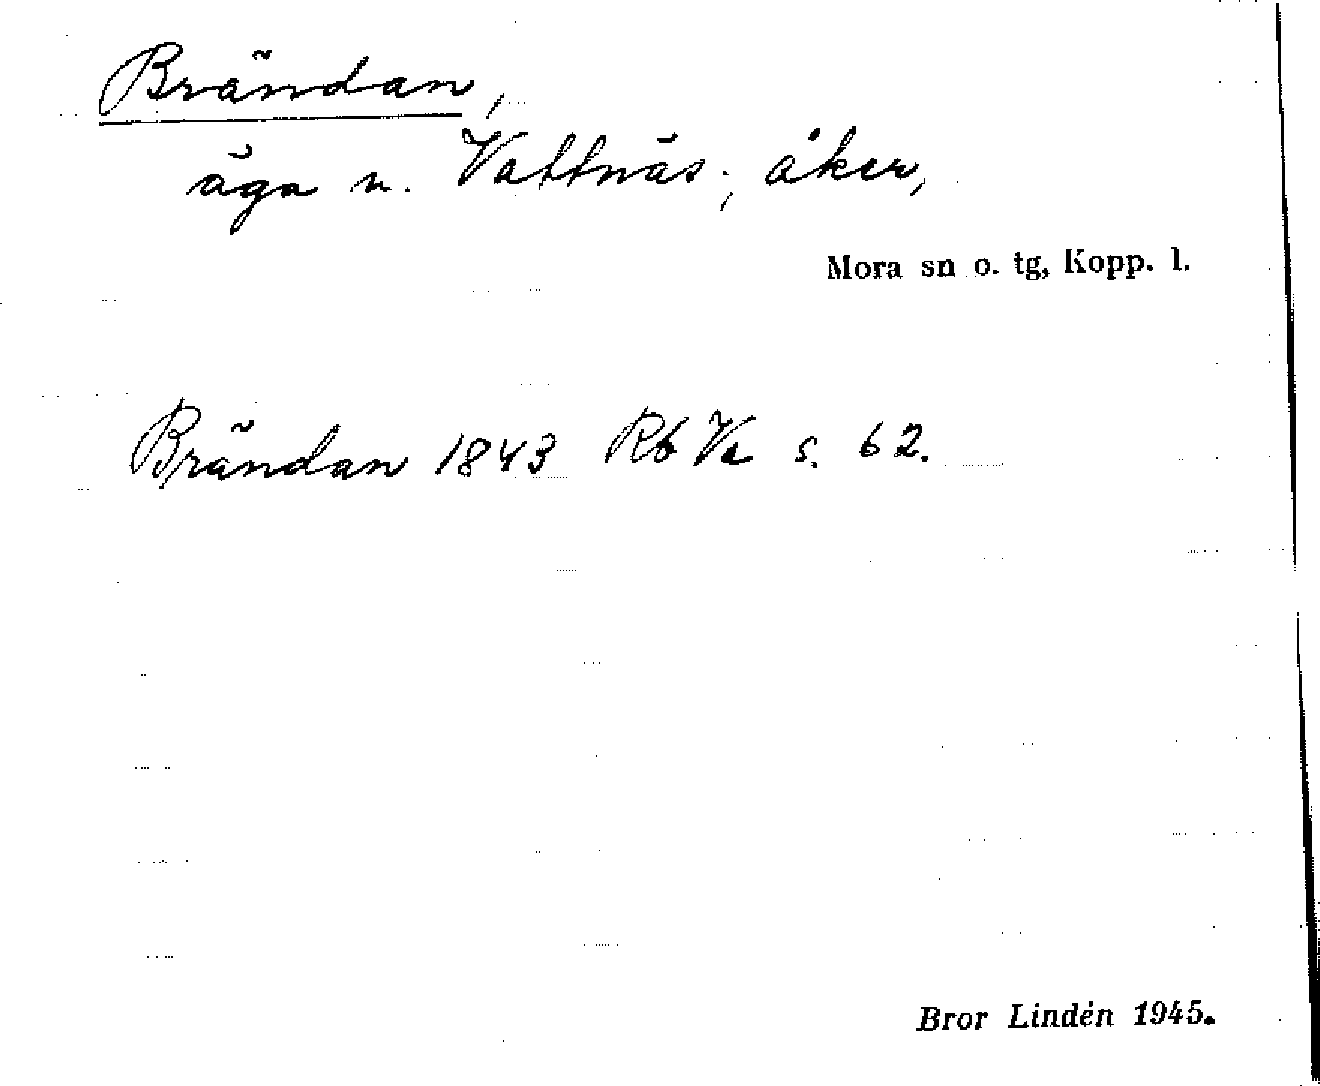 Brändan,
äga n. Vattnäs; åker,
Mora sn o. tg, Kopp. l.
Brändan 1843 Rb Va s. 62.
Bror Lindén 1945.